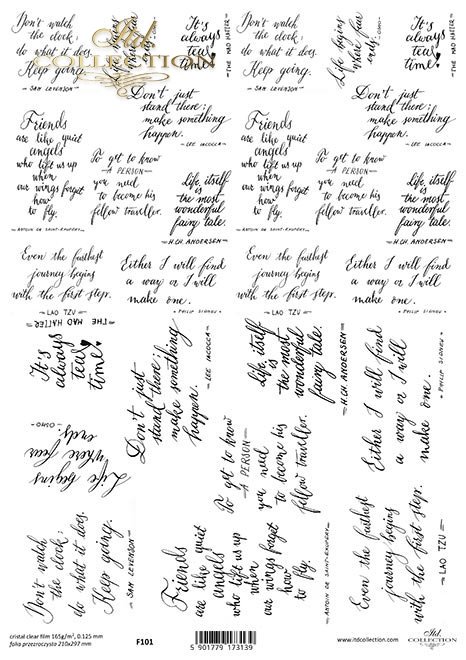 Don't watch
the clock;
do what it does.
Keep going.
- SAM LEVENSON -
Life begins
where fear
ends.
- OSHO -
It's
always
tea
time!
- THE MAD HATTER -
Itd.
COLLECTION
Don't watch
the clock;
do what it does.
Keep going.
- SAM LEVENSON -
Life begins
where fear
ends.
- OSHO -
It's
always
tea
time!
- THE MAD HATTER -
Friends
are like quiet
angels
who lift us up
when
our wings forget
how
to fly.
- ANTOIN DE SAINT-EXUPERY -
Don't just
stand there;
make something
happen.
- LEE IACOCCA -
To get to know
- A PERSON -
you need
to become his
fellow traveller.
Life, itself
is
the most
wonderful
fairy tale.
- H.CH. ANDERSEN -
Friends
are like quiet
angels
who lift us up
when
our wings forget
how
to fly.
- ANTOIN DE SAINT-EXUPERY -
Don't just
stand there;
make something
happen.
- LEE IACOCCA -
To get to know
- A PERSON -
you need
to become his
fellow traveller.
Life, itself
is
the most
wonderful
fairy tale.
- H.CH. ANDERSEN -
Even the farthest
journey begins
with the first step.
- LAO TZU -
Either I will find
a way or I will
make one.
- PHILIP SIDNEY -
Even the farthest
journey begins
with the first step.
- LAO TZU -
Either I will find
a way or I will
make one.
- PHILIP SIDNEY -
- THE MAD HATTER -
It's
always
tea
time!
Don't just
stand there;
make something
happen.
- LEE IACOCCA -
Life, itself
is
the most
wonderful
fairy tale.
- H.CH. ANDERSEN -
Either I will find
a way or I will
make one.
- PHILIP SIDNEY -
Life begins
where fear
ends.
- OSHO -
To get to know
- A PERSON -
you need
to become his
fellow traveller.
Don't watch
the clock;
do what it does.
Keep going.
- SAM LEVENSON -
Friends
are like quiet
angels
who lift us up
when
our wings forget
how
to fly.
- ANTOIN DE SAINT-EXUPERY -
Even the farthest
journey begins
with the first step.
- LAO TZU -
cristal clear film 165g/m², 0.125 mm
folia przezroczysta 210x297 mm
F101
5 901779 173139
www.itdcollection.com
Itd.
COLLECTION